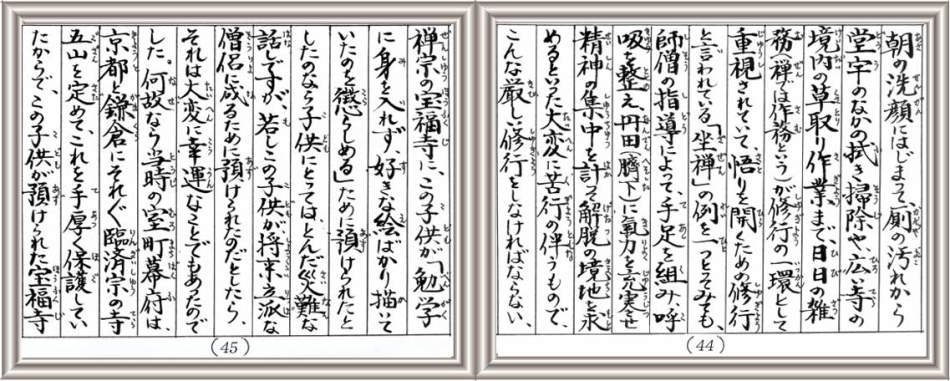 朝の洗顔にはじまって、厠の汚れから
堂宇のなかの拭き掃除や、広い寺の
境内の草取り作業まで、日日の雑
務(禅では作務という)が修行の一環として
重視されていて、悟りを開くための修行
と言われている「坐禅」の例を一つとてみても、
師僧の指導によって、手足を組み、呼
吸を整え、丹田(臍下)に気力を充実させ
精神の集中を計る解脱の境地を求
めるといった大変に苦行の伴うもので、
こんな厳しい修行をしなければならない、
(44)
禅宗の宝福寺に、この子供が「勉学
に身を入れず、好きな絵ばかり描いて
いたのを懲らしめる」ために預けられたと
したのなら子供にとっては、とんだ災難な
話しですが、若しこの子供が将来、立派な
僧侶に成るために預けられたのだとしたら、
それは大変に幸運なことでもあったので
した。何故なら当時の室町幕府は、
京都と鎌倉にそれぞれ臨済宗の寺
五山を定めて、これを手厚く保護してい
たからで、この子供が預けられた宝福寺
(45)